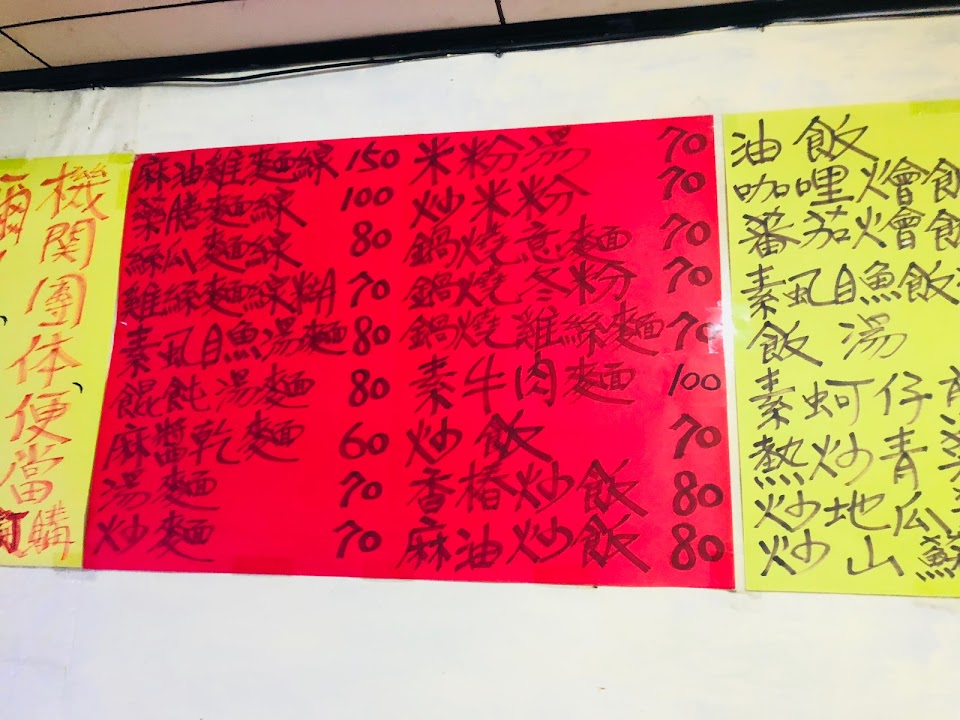 機関團体便當
訂購
麻油雞麵線 150
藥膳麵線 100
絲瓜麵線 80
雞絲麵線糊 70
素虱目魚湯麵 80
餛飩湯麵 80
麻醬乾麵 60
湯麵 70
炒麵 70
米粉湯 70
炒米粉 70
鍋燒意麵 70
鍋燒冬粉 70
鍋燒雞絲麵 70
素牛肉麵 100
炒飯 70
香椿炒飯 80
麻油炒飯 80
油飯
咖哩燴飯
蕃茄燴飯
素虱目魚飯
飯湯
素蚵仔
熱炒青菜
炒地瓜
炒山蘇